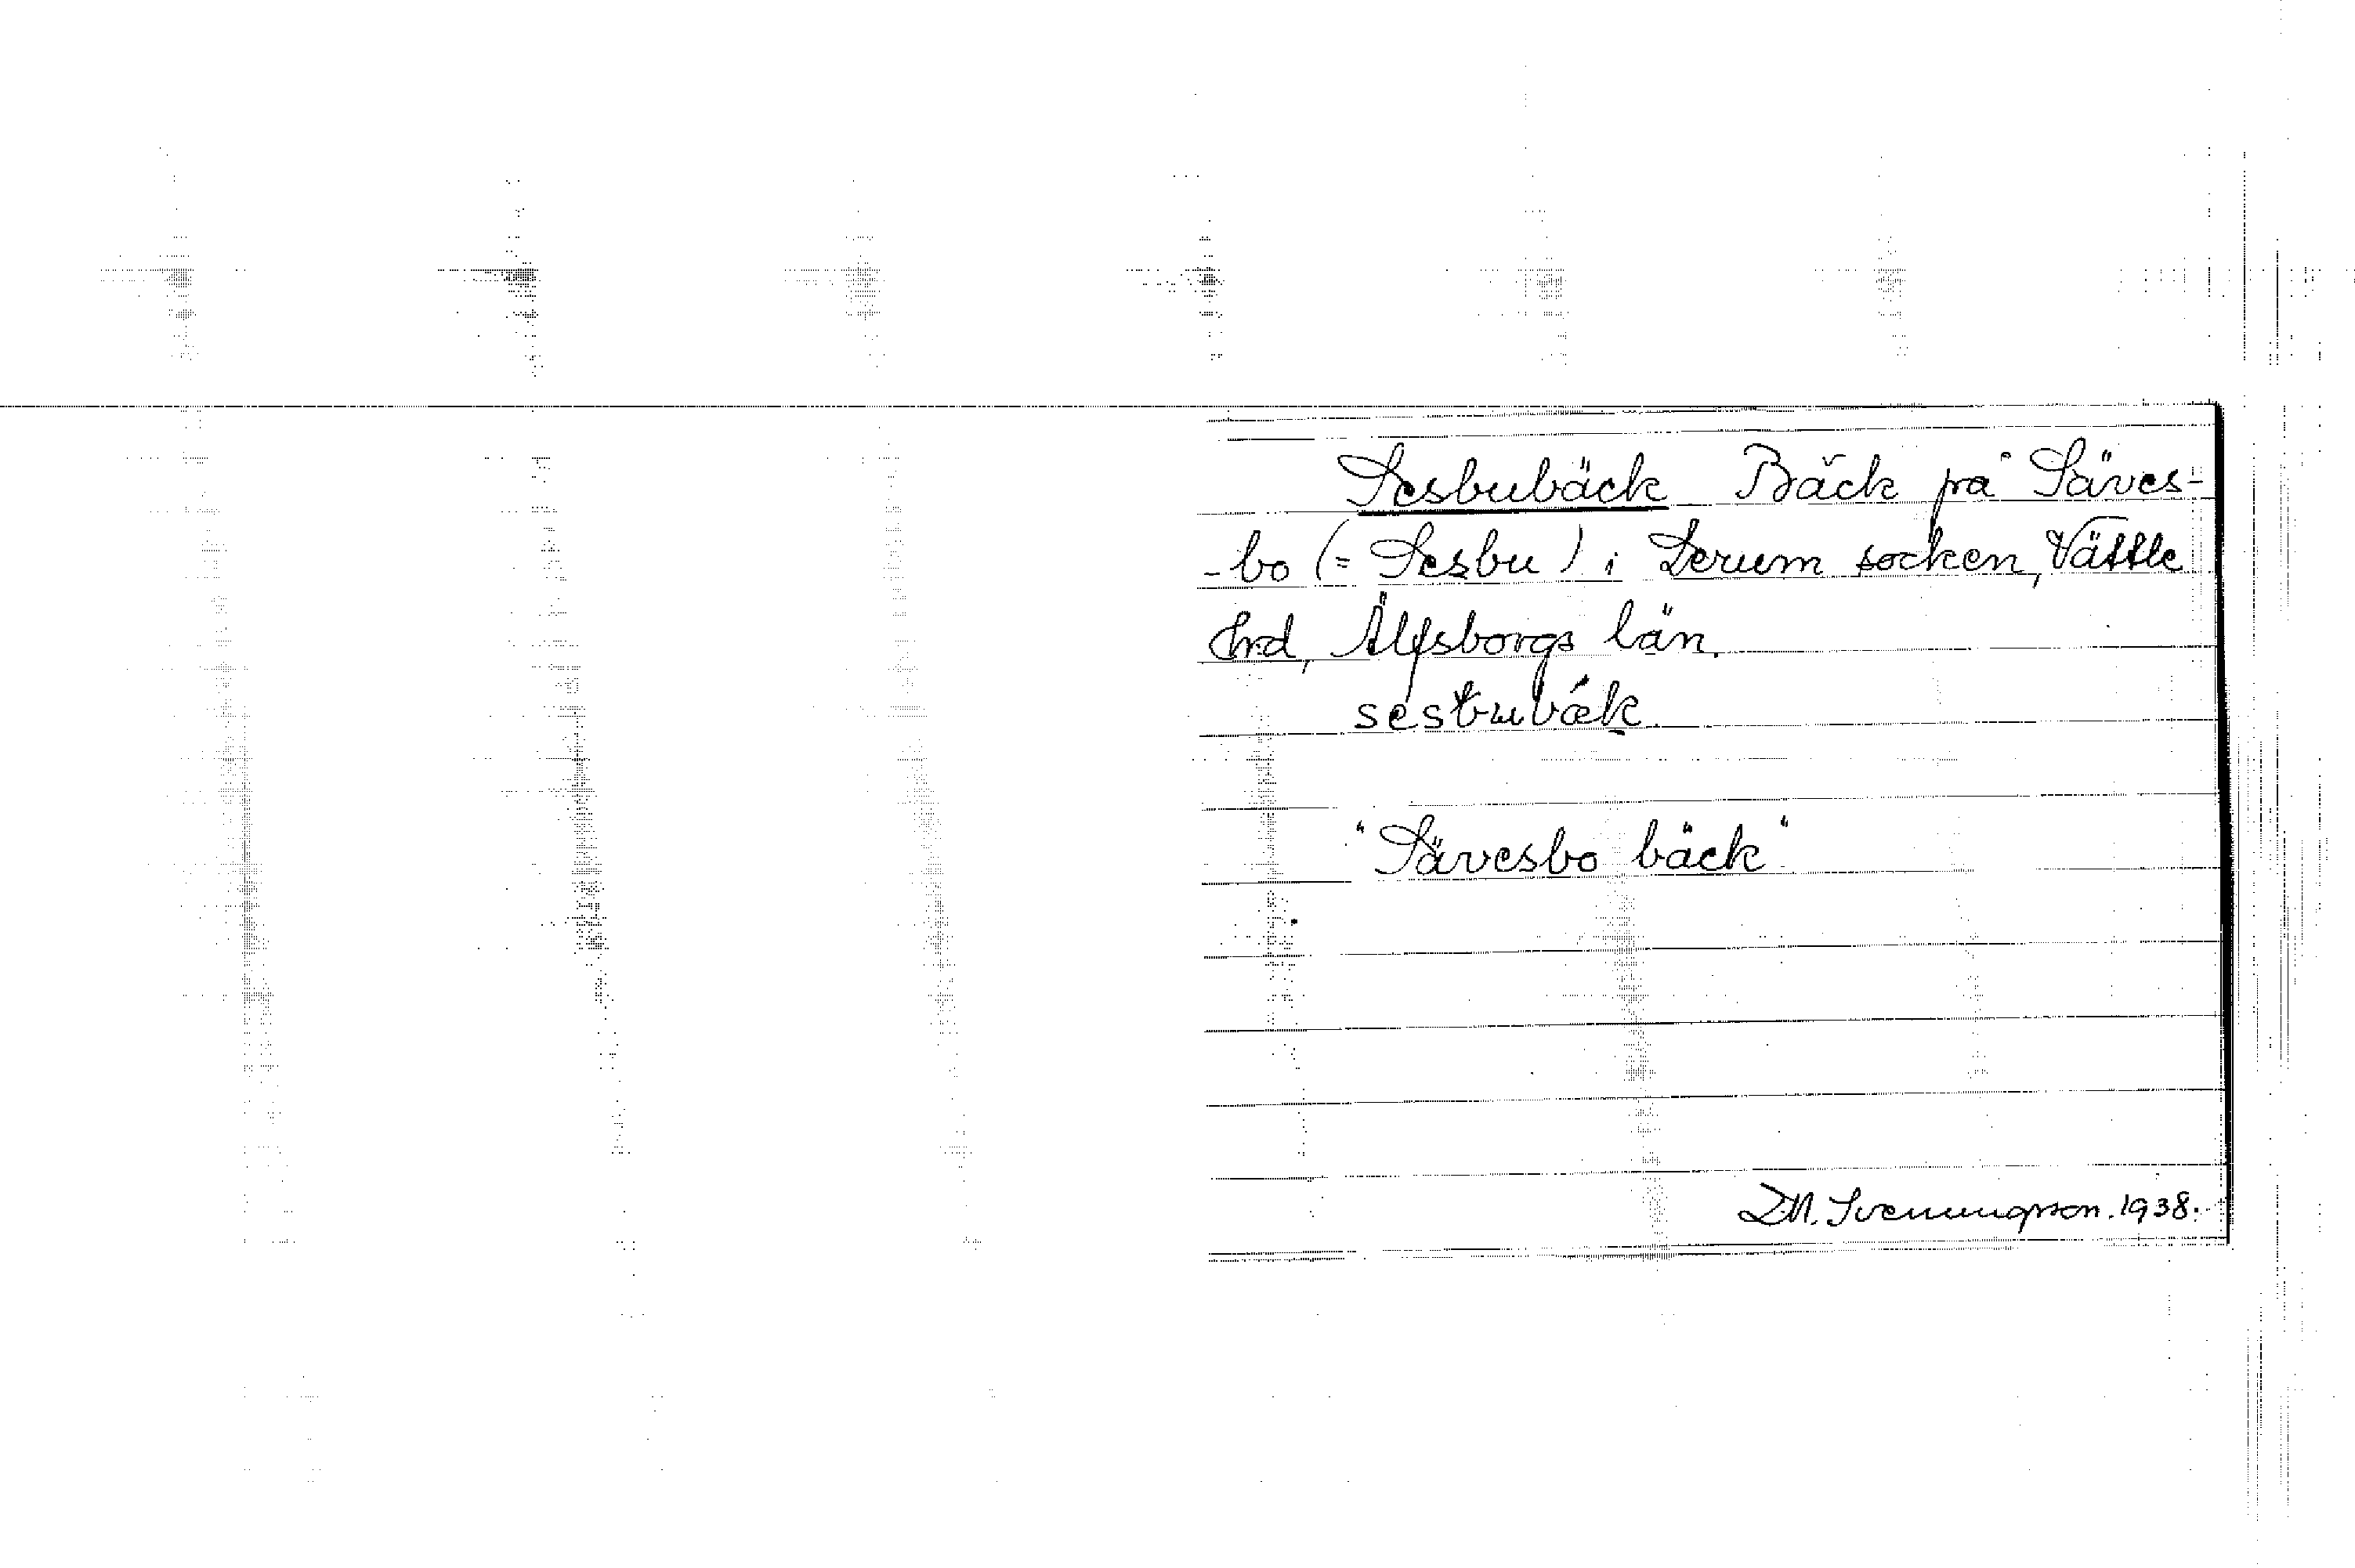 Sesbubäck Bäck på Säves-
-bo (= Sesbu) i Lerum socken, Vättle
hrd, Älfsborgs län.
sesbubäk
"Sävesbo bäck"
D.M. Svenungsson. 1938.